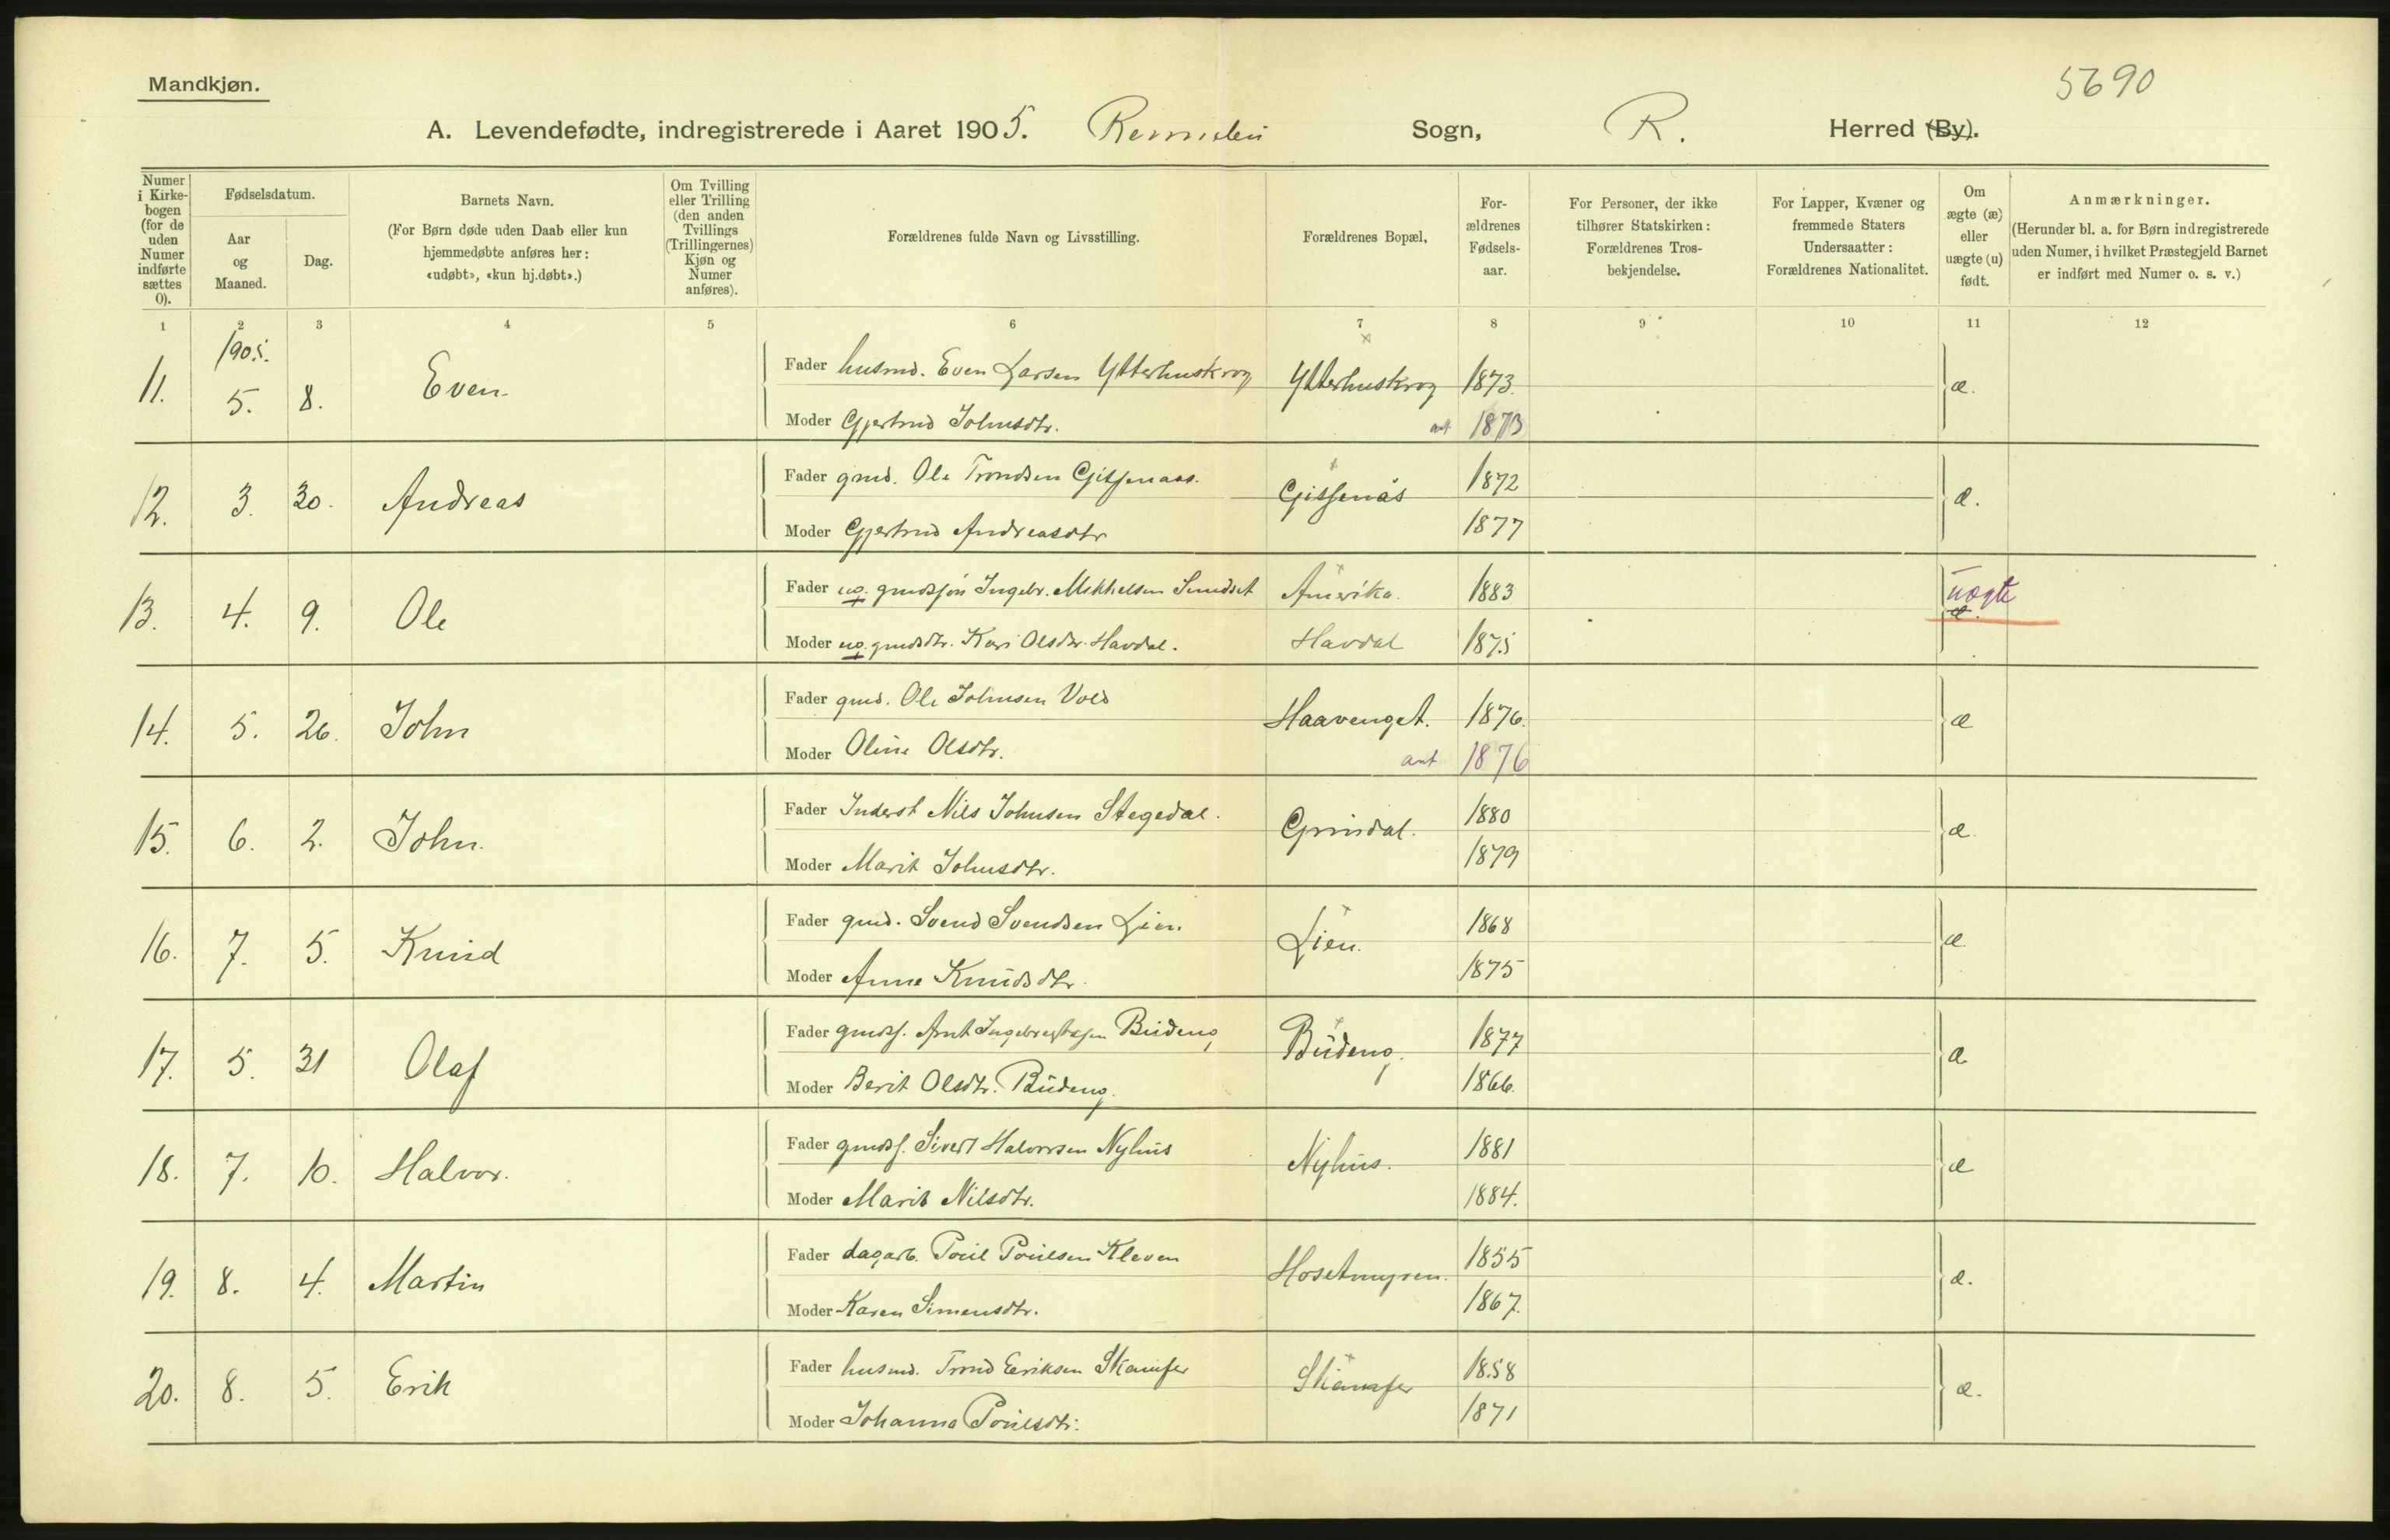 Mandkjøn.
5690
A. Levendefødte, indregistrerede i Aaret 1905. Sogn, R. Herred (By).
Numer i Kirkebogen (for de uden Numer indførte sættes 0).
Fødselsdatum.
Aar og Maaned.
Dag.
Barnets Navn.
(For Børn døde uden Daab eller kun hjemmedøbte anføres her: «udøbt», «kun hj.døbt».)
Om Tvilling eller Trilling (den anden Tvillings (Trillingernes) Kjøn og Numer anføres).
Forældrenes fulde Navn og Livsstilling.
Forældrenes Bopæl,
Forældrenes Fødselsaar.
For Personer, der ikke tilhører Statskirken: Forældrenes Trosbekjendelse.
For Lapper, Kvæner og fremmede Staters Undersaatter: Forældrenes Nationalitet.
Om ægte (æ) eller uægte (u) født.
Anmærkninger.
(Herunder bl. a. for Børn indregistrerede uden Numer, i hvilket Præstegjeld Barnet er indført med Numer o. s. v.)
1 2 3 4 5 6 7 8 9 10 11 12
1905.
11. 5. 8. Even. Fader husmd. Even Larsen Ytterhuskrog Ytterhuskrog 1873. æ.
Moder Gjertrud Johnsdtr. ant 1873
12. 3. 30. Andreas Fader gmd. Ole Trondsen Gisnaas. Gisnås 1872 æ.
Moder Gjertrud Andreasdtr 1877
13. 4. 9. Ole Fader ug. gmdssøn Ingebr. Mikkelsen Amerika. 1883 uægte æ.
Moder ug. gmdsdtr. Kari Olsdtr. Havdal. Havdal 1875
14. 5. 26. John Fader gmd. Ole Johnsen Vold Haavenget. 1876. æ
Moder Oline Olsdtr. ant 1876
15. 6. 2. John. Fader Inderst Nils Johnsen Stegedal. Grindal. 1880 æ.
Moder Marit Johnsdtr. 1879
16. 7. 5. Knud Fader gmd. Svend Svendsen Lien Lien. 1868 æ
Moder Anne Knudsdtr. 1875
17. 5. 31 Olaf Fader gmdss. Arnt Ingebregtsen Budeng Budeng. 1877 æ
Moder Berit Olsdtr. Budeng. 1866.
18. 7. 10. Halvor. Fader gmdss. Sivert Halvorsen Nyhus Nyhus. 1881 æ
Moder Marit Nilsdtr. 1884.
19. 8. 4. Martin Fader dagarb. Poul Poulsen Kleven Hosetmyren. 1855 æ.
Moder Karen Simensdtr. 1867.
20. 8. 5. Erik Fader husmd. Trond Eriksen Skamfer Skamfer 1858 æ.
Moder Johanna Poulsdtr. 1871